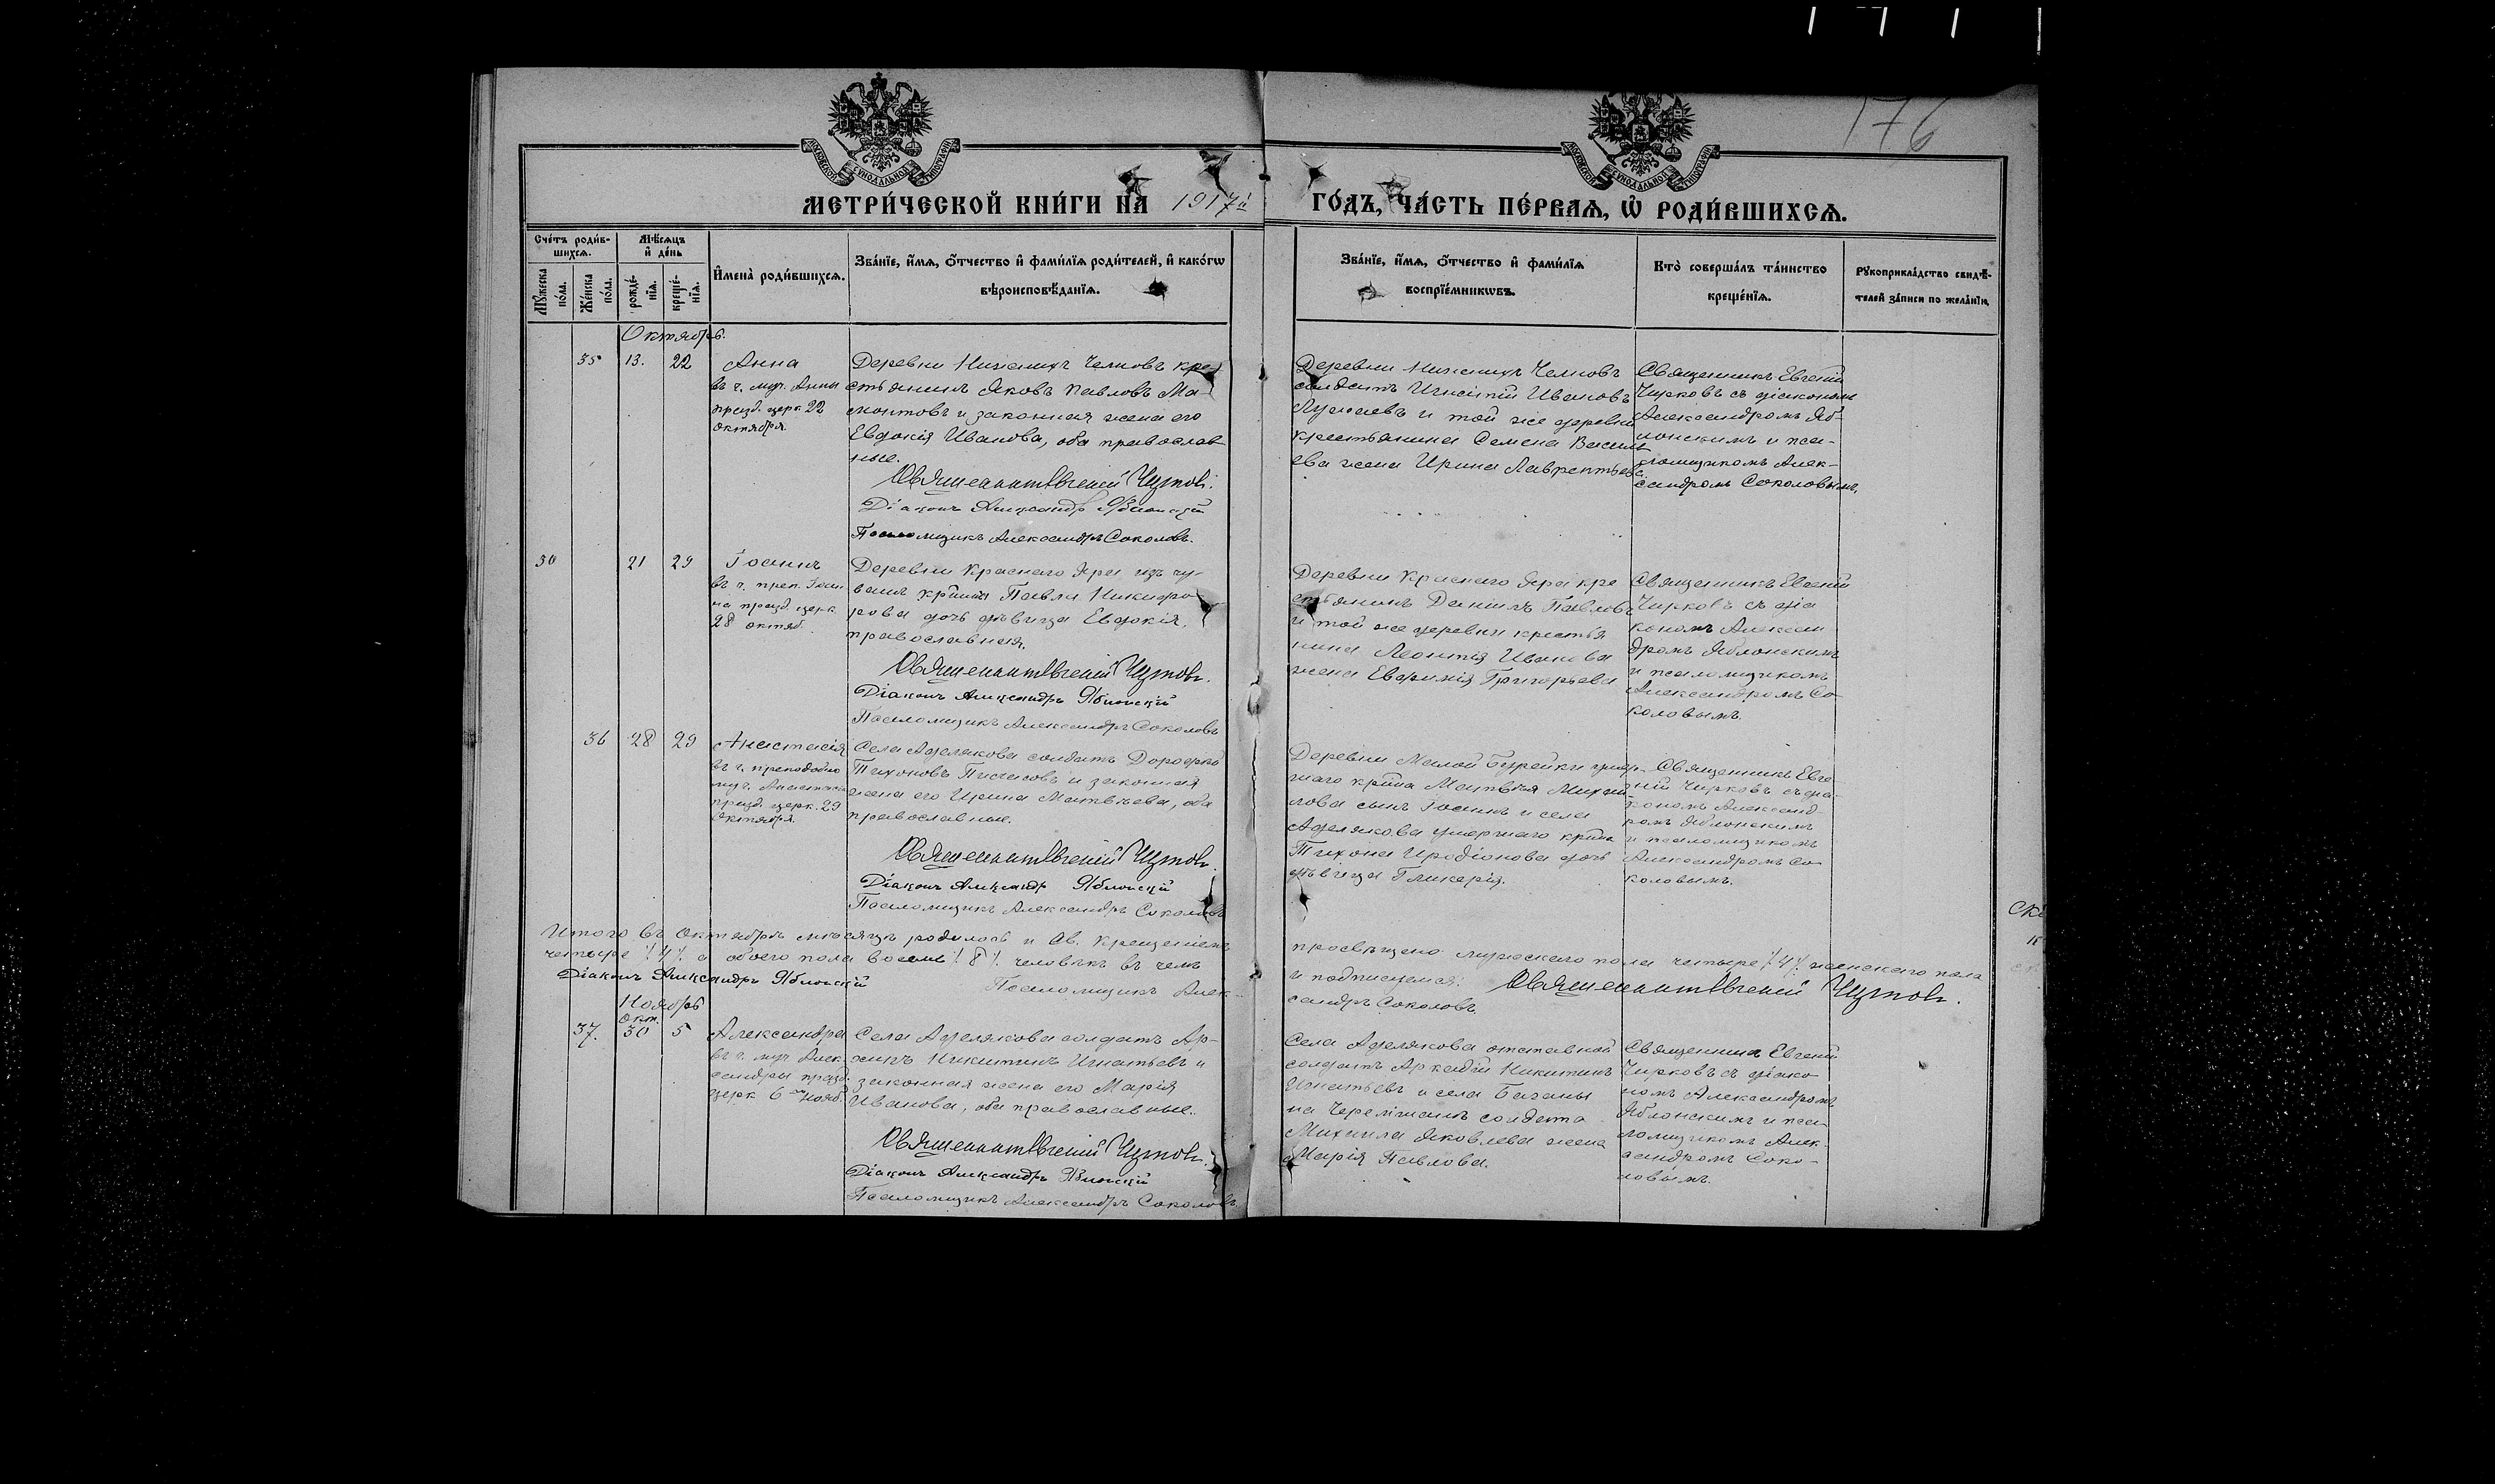 176
МОСКОВСКОЙ СѴНОДАЛЬНОЙ ТѴПОГРАФІИ
МОСКОВСКОЙ СѴНОДАЛЬНОЙ ТѴПОГРАФІИ
МЕТРИ́ЧЕСКОЙ КНИ́ГИ НА́ 1917й ГО́ДЪ, ЧА́СТЬ ПЕ́РВАѦ, Ѽ РОДИ́ВШИХСѦ.
Сче́тъ роди́в-
шихсѧ.
Мꙋ́жеска по́ла.
Же́нска по́ла.
Мѣ́сѧцъ
и҆ де́нь
рожде́-
нїѧ.
креще́-
нїѧ.
И҆мена̀ роди́вшихсѧ.
Зва́нїе, и҆́мѧ, ѻ҆́тчество и҆ фами́лїѧ роди́телей, и҆ како́гѡ
вѣроисповѣ́данїѧ.
Зва́нїе, и҆́мѧ, ѻ҆́тчество и҆ фами́лїѧ
воспрїе́мникѡвъ.
Кто̀ соверша́лъ та́инство
креще́нїѧ.
Рꙋкоприкла́дство свидѣ́-
телей за́писи по жела́нїю.
Октябрь.
35 13. 22
Анна
въ ч. муч. Анны
празд. церк. 22
октября.
Деревни Нижнихъ Челновъ кре-
стьянинъ Яковъ Павловъ Ма-
монтовъ и законная жена его
Евдокія Иванова, оба православ
ные.
Священникъ Евгеній Чирковъ.
Діаконъ Александръ Яблонскій
Псаломщикъ Александръ Соколовъ.
Деревни Нижнихъ Челновъ
солдатъ Игнатій Ивановъ
и той же деревни
крестьянина Семена Василь
ева жена Ирина Лаврентьева
Священникъ Евгеній
Чирковъ съ діакономъ
Александромъ Яб-
лонскимъ и пса-
ломщикомъ Алек-
сандромъ Соколовымъ.
30 21 29
Іоаннъ
въ ч. преп. Іоан
на празд. церк.
28 октяб.
Деревни Краснаго Яра изъ чу-
вашъ Павла Никифо
рова дочь дѣвица Евдокія,
православная.
Священникъ Евгеній Чирковъ.
Діаконъ Александръ Яблонскій
Псаломщикъ Александръ Соколовъ
Деревни Краснаго Яра кре
стьянинъ Даніилъ Павловъ
и той же деревни крестья
нина Леонтія Иванова
жена Евфимія Григорьева
Священникъ Евгеній
Чирковъ съ діа
кономъ Алексан
дромъ Яблонскимъ
и псаломщикомъ
Александромъ Со-
коловымъ.
36 28 29
Анастасія
въ ч. преподобно
муч. Анастасіи
празд. церк. 29
Октября.
Села Аделякова солдатъ Дорофей
Тихоновъ и законная
жена его Ирина Матвѣева, оба
православные.
Священникъ Евгеній Чирковъ.
Діаконъ Александръ Яблонскій
Псаломщикъ Александръ Соколовъ
Деревни Малой Бурейки умер-
шаго Матвѣя Михай-
лова сынъ Іоаннъ и села
Аделякова умершаго
Тихона Иродіонова дочь
дѣвица Гликерія.
Священникъ Евге
ній Чирковъ съ діа-
кономъ Александ-
ромъ Яблонскимъ
и псаломщикомъ
Александромъ Со-
коловымъ.
Итого въ Октябрѣ мѣсяцѣ родилось и Св. Крещеніемъ просвѣщено мужескаго пола четыре /4/. женскаго пола
четыре /4/. а обоего пола восемь /8/. человѣкъ въ чемъ и подписуемся: Священникъ Евгеній Чирковъ.
Діаконъ Александръ Яблонскій Псаломщикъ Алек-
сандръ Соколовъ
Ноябрь
окт.
37. 30 5
Александра
въ ч. муч. Алек
сандры празд.
церк 6 нояб.
Села Аделякова солдатъ Ар-
Никитинъ Игнатьевъ и
законная жена его Марія
Иванова, оба православные.
Священникъ Евгеній Чирковъ.
Діаконъ Александръ Яблонскій
Псаломщикъ Александръ Соколовъ
Села Аделякова отставной
солдатъ Аркадій Никитинъ
Игнатьевъ и села Багана
на Черемшанѣ солдата
Михаила Яковлева жена
Марія Павлова.
Священника Евгеній
Чирковъ съ діако
номъ Александромъ
Яблонскимъ и пса-
ломщикомъ Алек-
сандромъ Соко-
ловымъ.